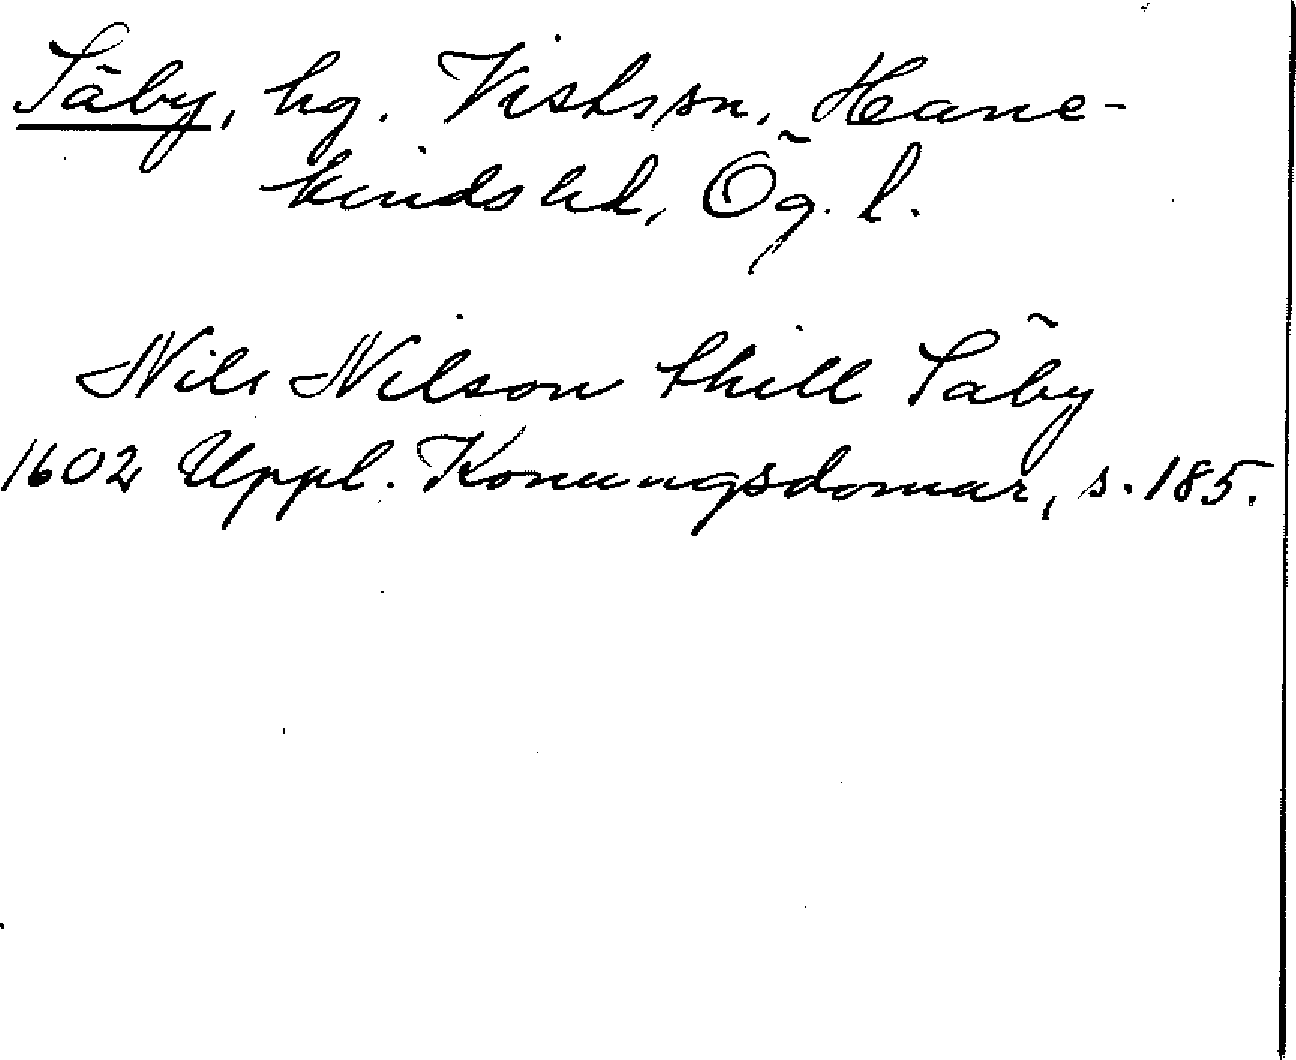 Säby, hg. Vists sn, Hane-
kinds hd, Ög. l.
Nils Nilson thill Säby
1602 Uppl. Konungsdomar, s. 185.